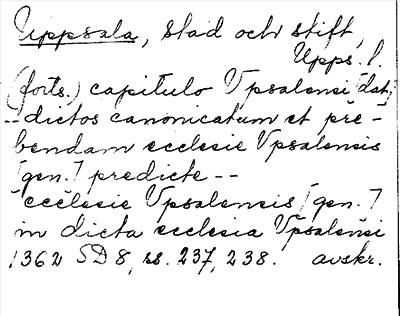 Uppsala, stad och stift,
Upps. l.
(forts.) capitulo Vpsalensi [dat.]
-- dictos canonicatum et pre-
bendam ecclesie Vpsalensis
[gen.] predicte --
ecclesie Vpsalensis [gen.]
in dicta ecclesia Vpsalensi
1362 SD 8, ss. 237, 238. avskr.